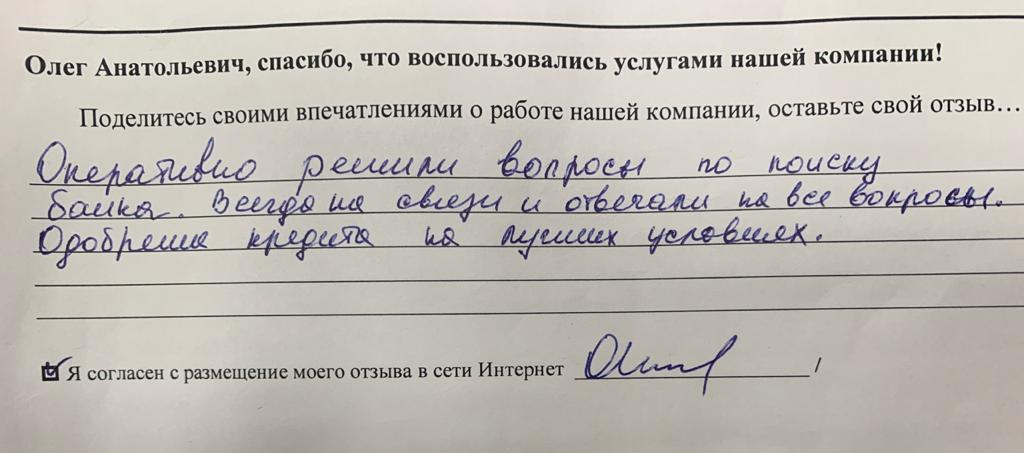 Олег Анатольевич, спасибо, что воспользовались услугами нашей компании!
Поделитесь своими впечатлениями о работе нашей компании, оставьте свой отзыв…
Оперативно решили вопросы по поиску
банка. Всегда на связи и отвечали на все вопросы.
Одобрение кредита на лучших условиях.
Я согласен с размещение моего отзыва в сети Интернет /